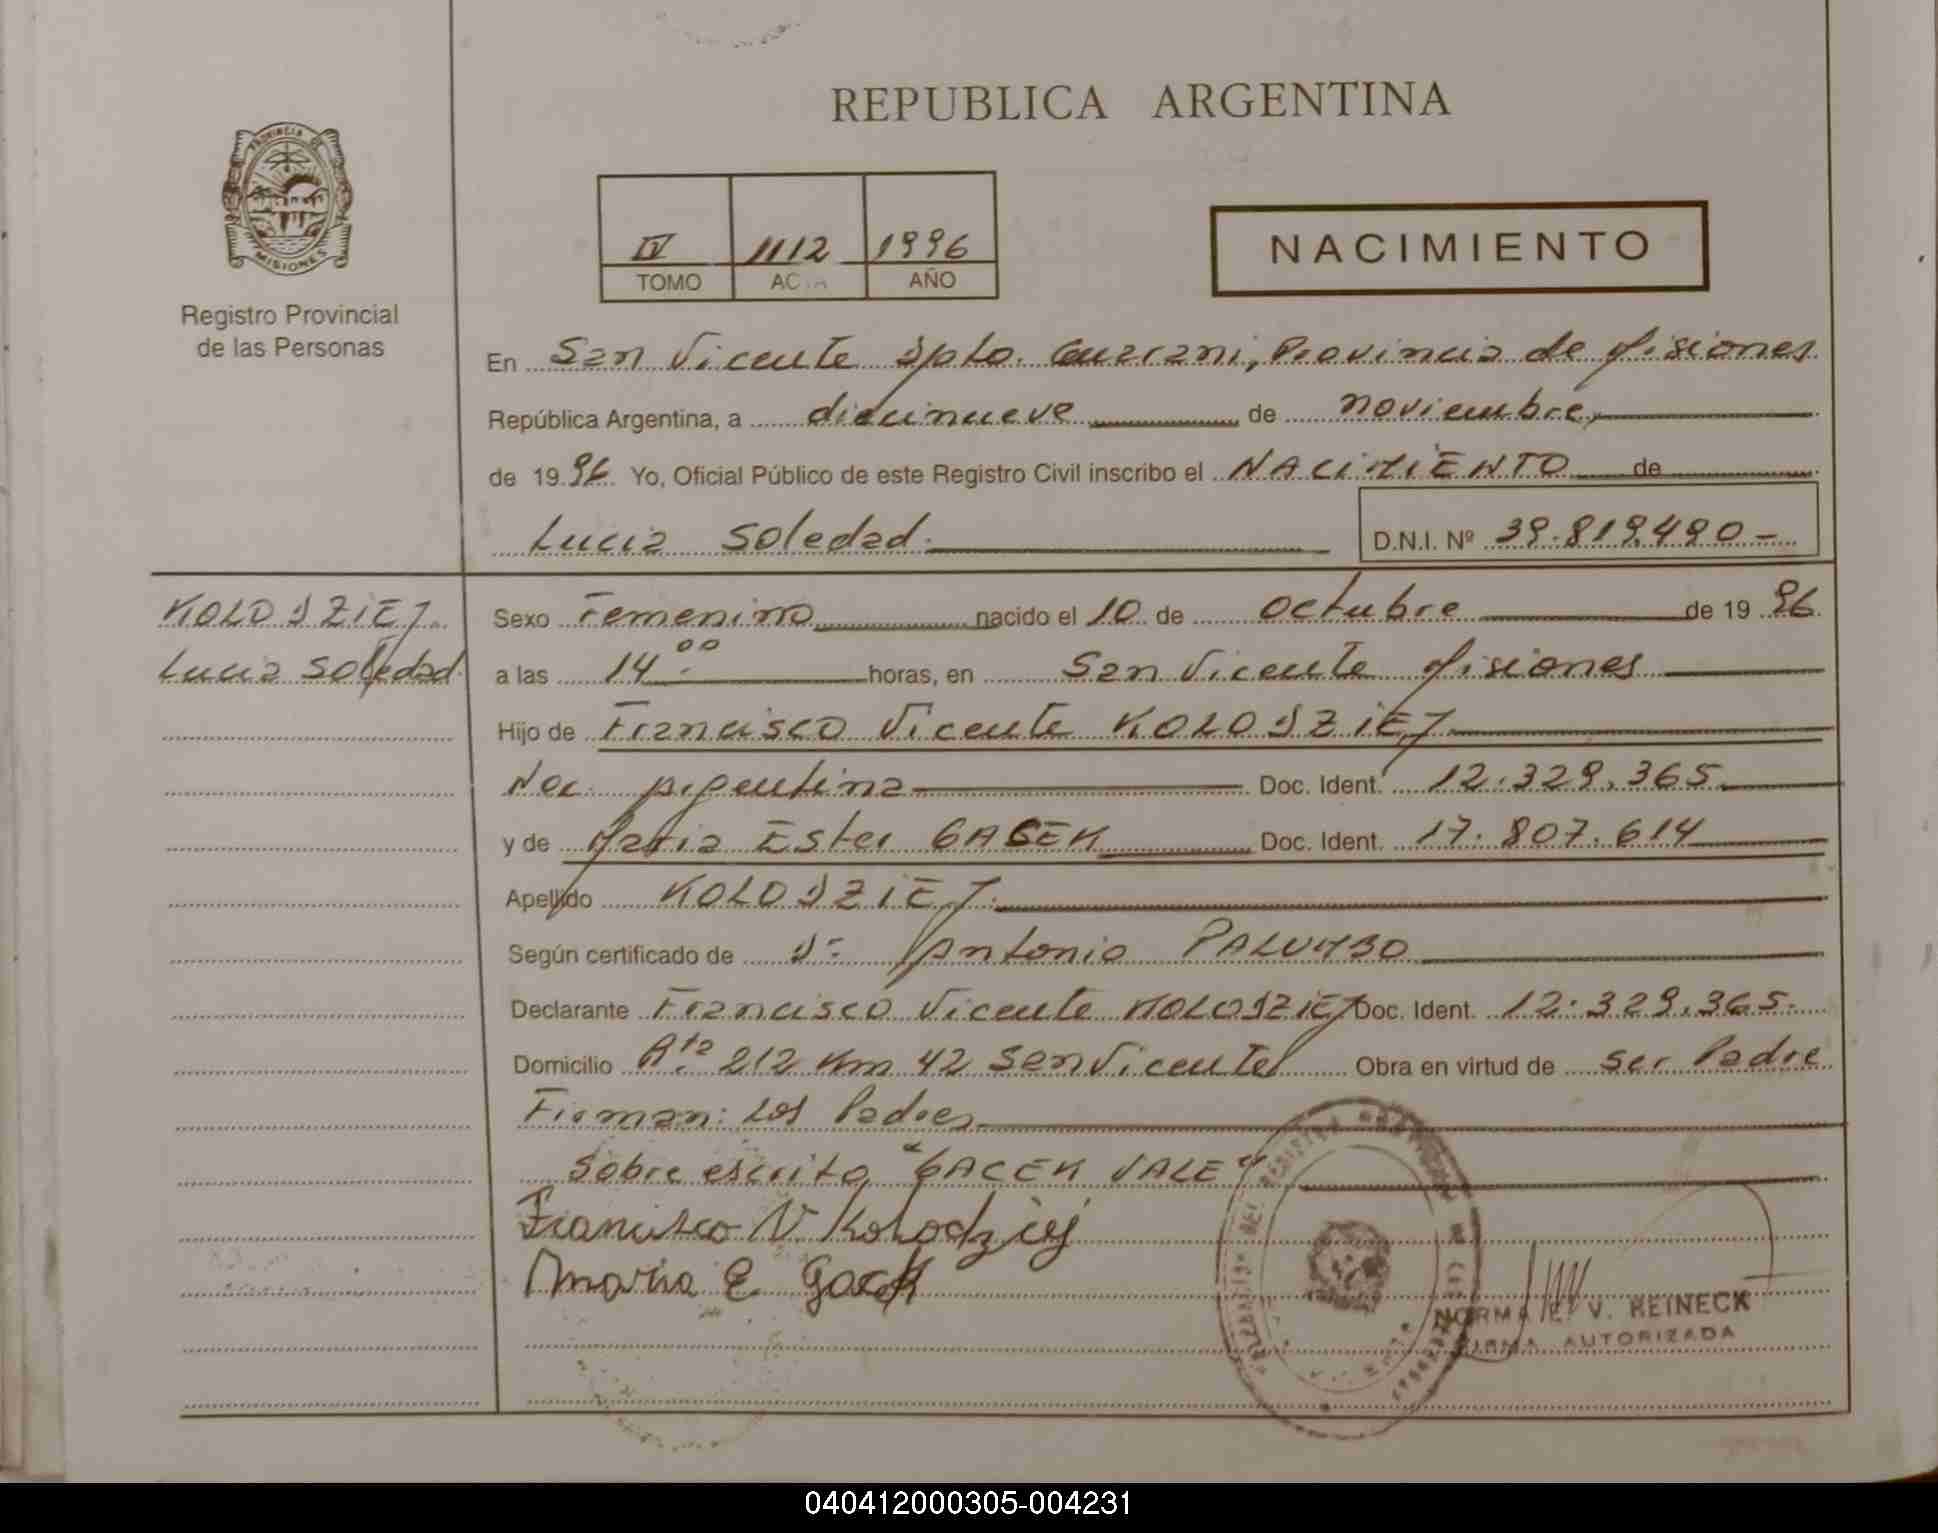 REPUBLICA ARGENTINA
PROVINCIA DE
MISIONES
Registro Provincial
de las Personas
IV 1112 1996
TOMO ACTA AÑO
NACIMIENTO
En San Vicente Dpto. Guarani, Provincia de Misiones
República Argentina, a diecinueve de noviembre,
de 1996 Yo, Oficial Público de este Registro Civil inscribo el NACIMIENTO de
Lucia Soledad. D.N.I. Nº 39.819.490-
KOLODZIEJ
Lucia Soledad
Sexo Femenino nacido el 10 de octubre de 1996
a las 14:00 horas, en San Vicente Misiones
Hijo de Francisco Vicente KOLODZIEJ
Nac. Argentina Doc. Ident. 12.329.365
y de Maria Ester GACEK Doc. Ident. 17.807.614
Apellido KOLODZIEJ.
Según certificado de Dr. Antonio PALUMBO
Declarante Francisco Vicente KOLODZIEJ Doc. Ident. 12.329.365.
Domicilio Rta. 212 Km 42 San Vicente Obra en virtud de ser Padre
Firman: Los Padres
Sobre escrito "GACEK VALE"
Francisco V Kolodziej
Maria E Gacek
NORMA E. V. REINECK
FIRMA AUTORIZADA
040412000305-004231